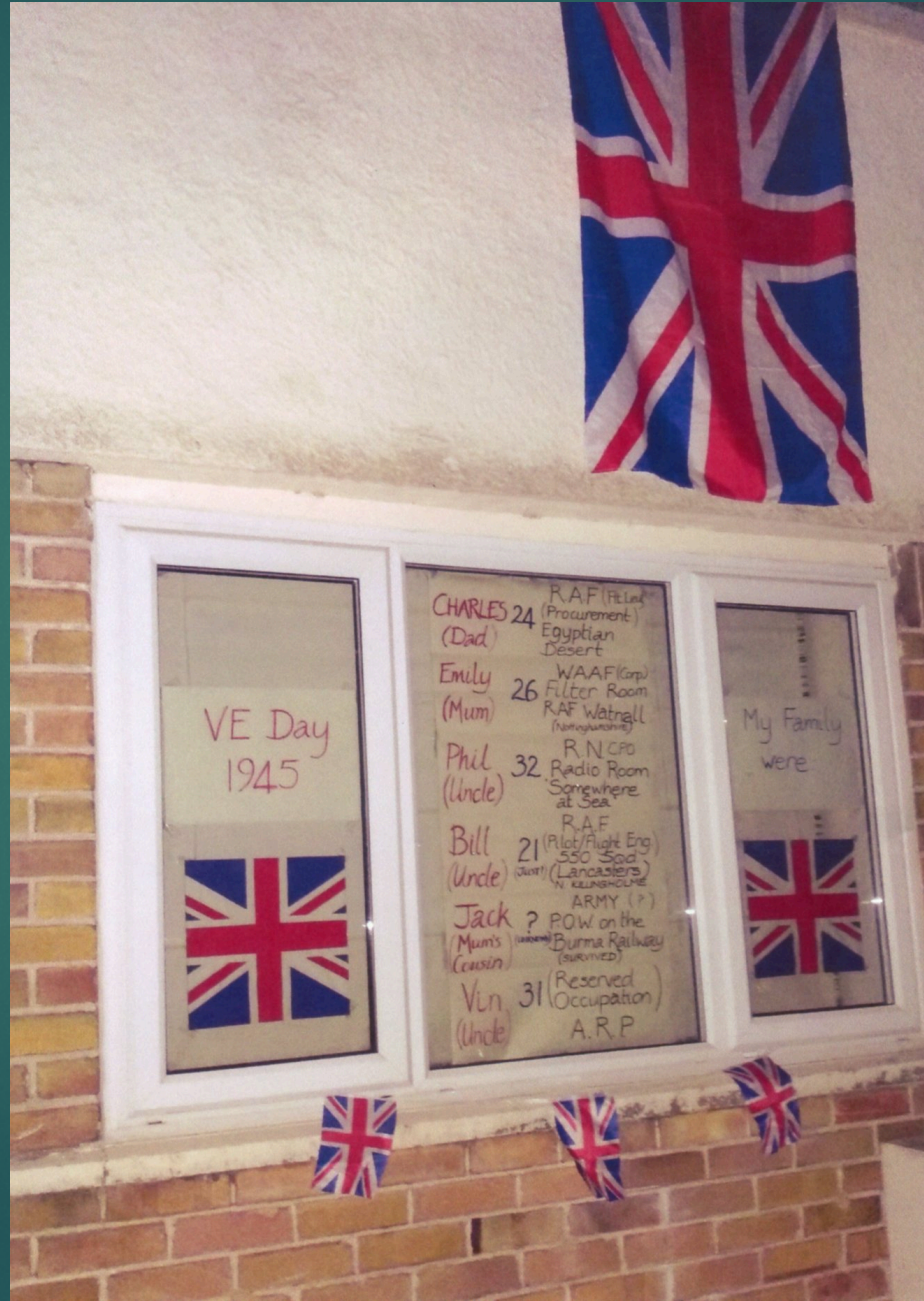 VE Day
1945
CHARLES 24 R.A.F (Flt Leu)
(Dad) (Procurement)
Egyptian
Desert
Emily 26 WAAF (Corp)
(Mum) Filter Room
RAF Watnall
(Nottinghamshire)
Phil 32 R.N CPO
(Uncle) Radio Room
'Somewhere
at Sea'
Bill 21 R.A.F
(Uncle) (JUST!) (Pilot/Flight Eng)
550 Sqd
(Lancasters)
N. KILLINGHOLME
Jack ? ARMY (?)
(Mum's Cousin) (UNKNOWN) P.O.W on the
Burma Railway
(SURVIVED)
Vin 31 (Reserved
(Uncle) Occupation)
A.R.P
My Family
were